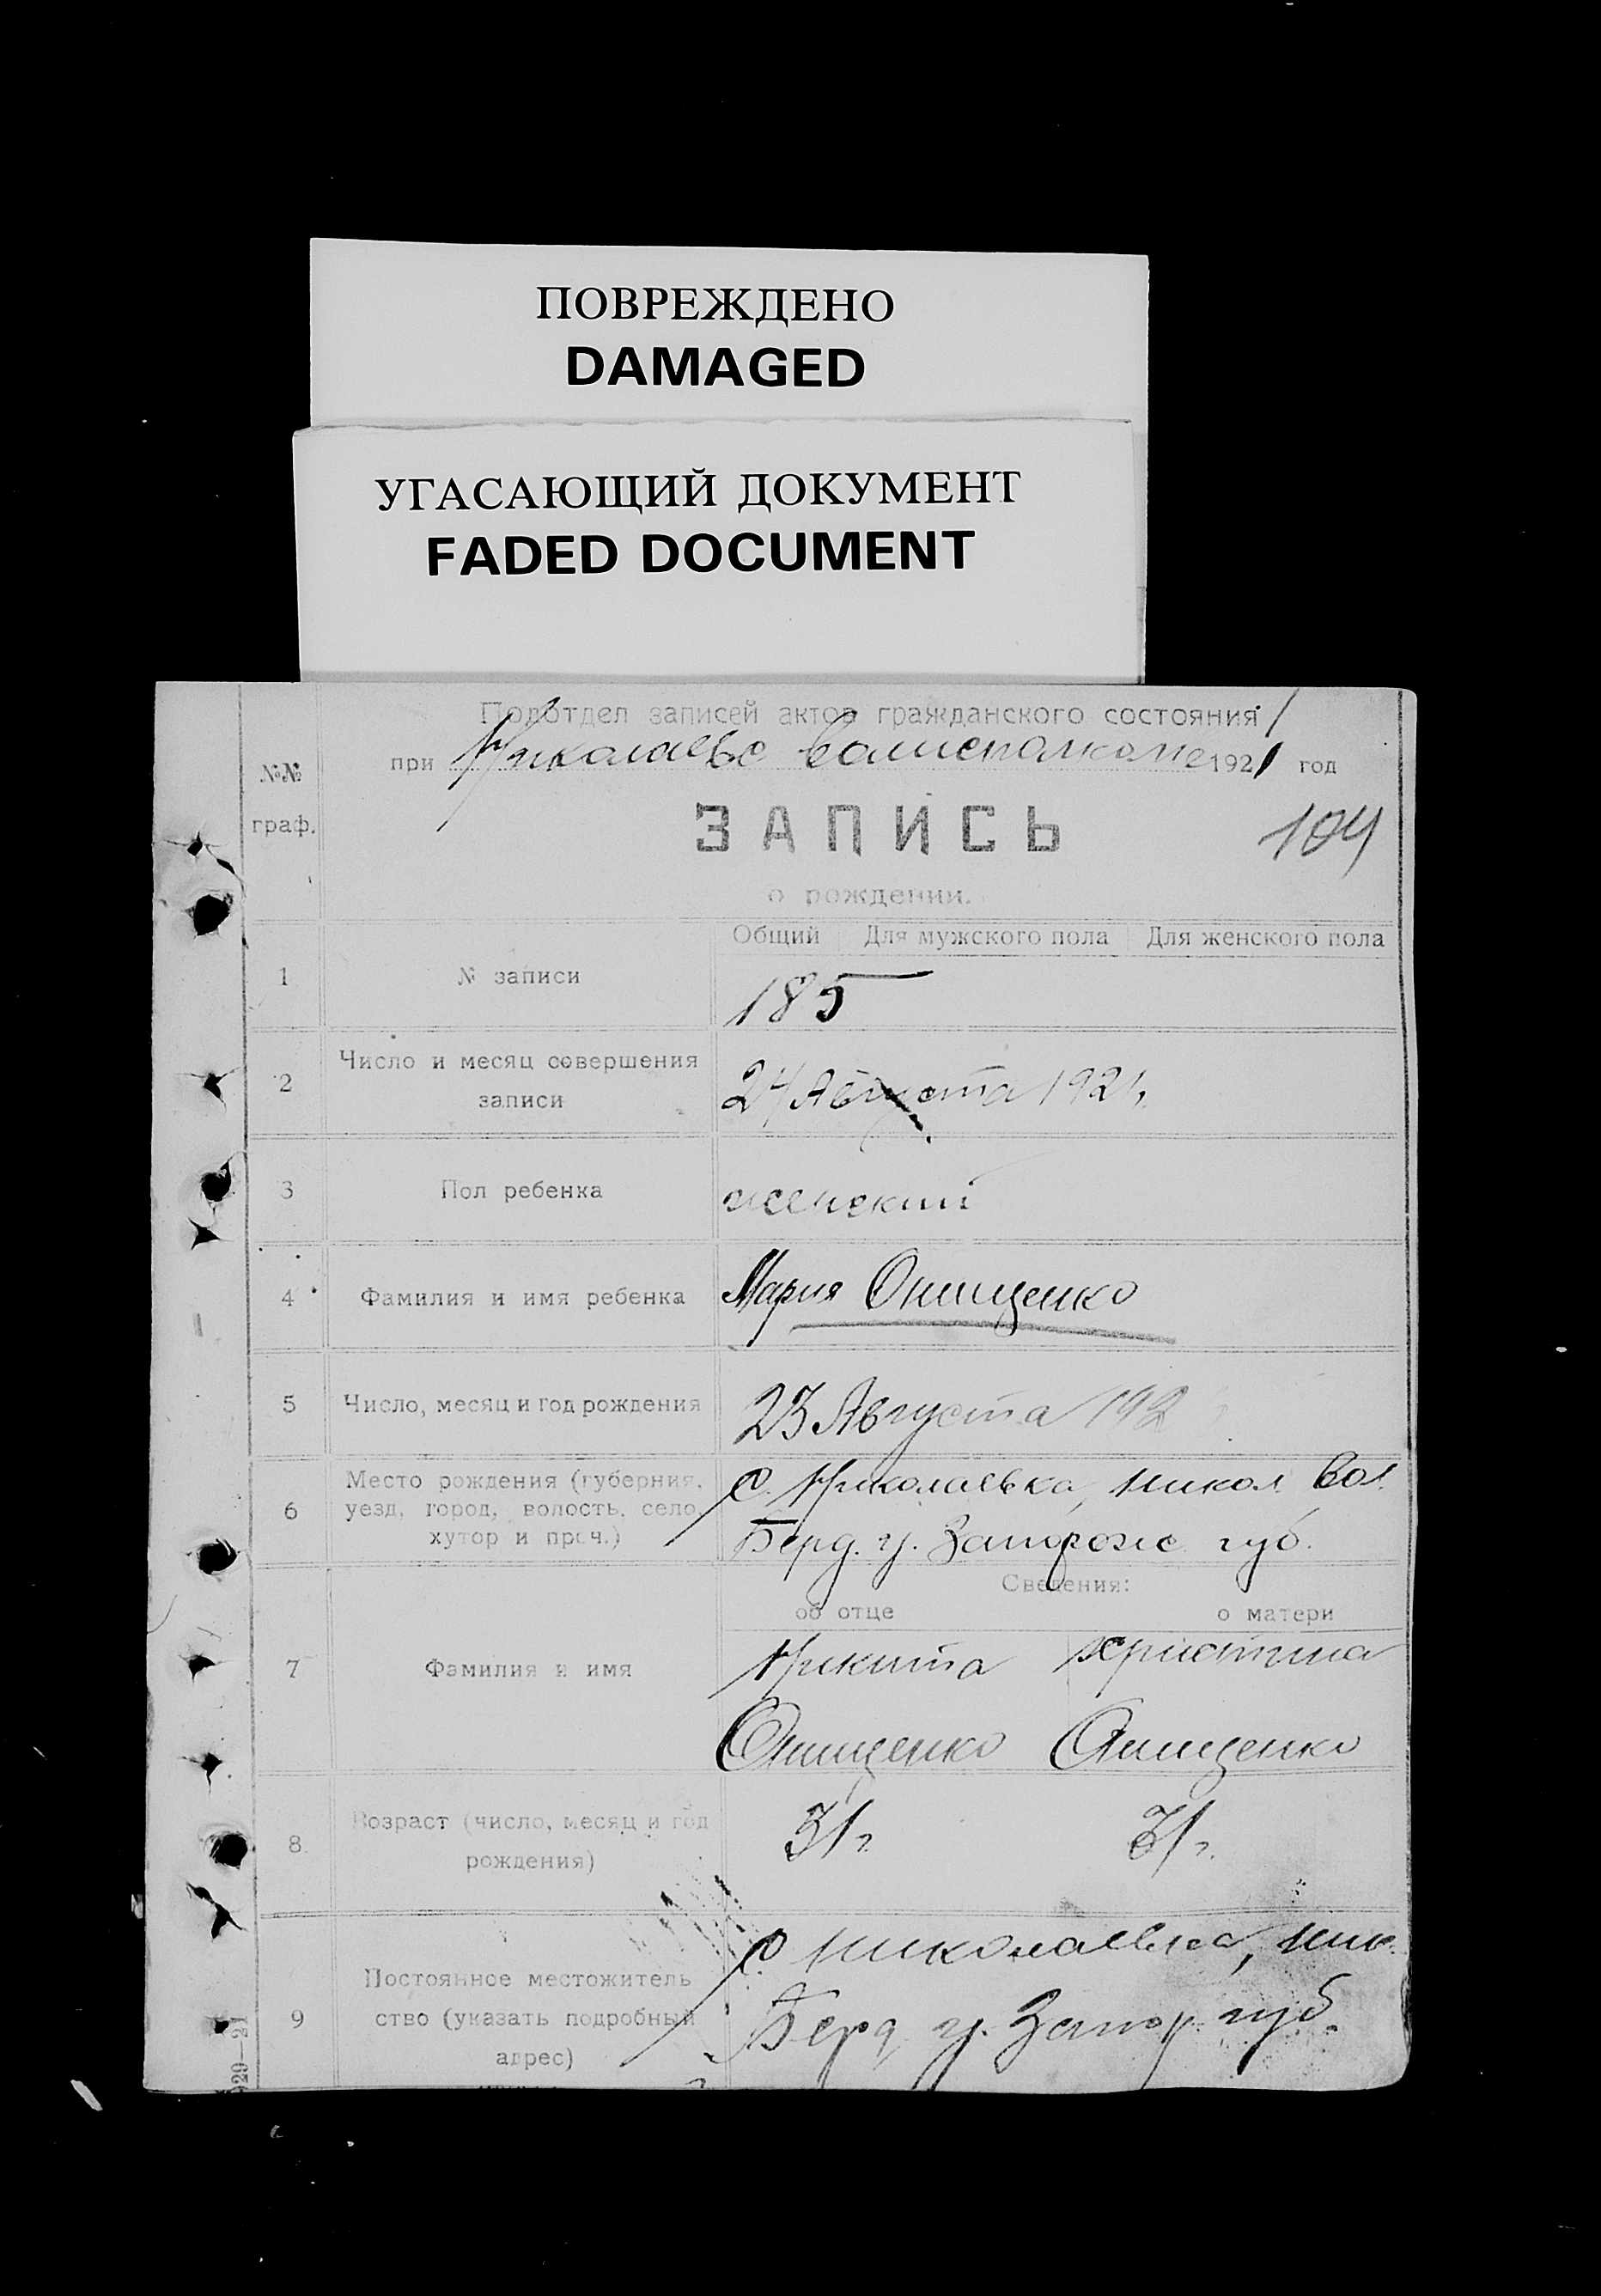 ПОВРЕЖДЕНО
DAMAGED
УГАСАЮЩИЙ ДОКУМЕНТ
FADED DOCUMENT
Подотдел записей актов гражданского состояния
при Николаевс волисполкоме 1921 год
№№
граф.
104
ЗАПИСЬ
о рождении.
Общий Для мужского пола Для женского пола
1 № записи 185
2 Число и месяц совершения
записи
24 Августа 1921
3 Пол ребенка женский
4 Фамилия и имя ребенка Мария Онищенко
5 Число, месяц и год рождения 23 Августа 192
6 Место рождения (губерния,
уезд, город, волость, село,
хутор и проч.)
с. Николаевка, Никол. Вол.
Берд. у. Запорожс губ.
Сведения:
об отце о матери
7 Фамилия и имя
Никита Христина
Онищенко Онищенко
8 Возраст (число, месяц и год
рождения)
31 г. 31 г.
9 Постоянное местожитель
ство (указать подробный
адрес)
с. Николаевка, Ник.
Берд. у. Запор. губ.
929—21